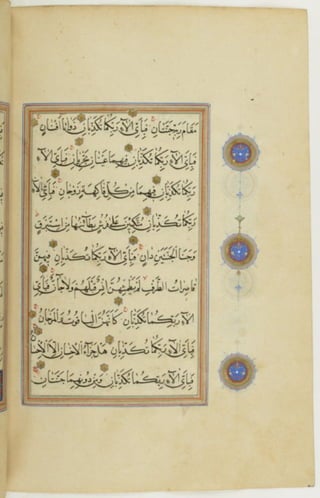 مَقَامَ رَبِّهِ جَنَّتَانِ فَبِأَيِّ آلَاءِ رَبِّكُمَا تُكَذِّبَانِ ذَوَاتَا أَفْنَانٍ
فَبِأَيِّ آلَاءِ رَبِّكُمَا تُكَذِّبَانِ فِيهِمَا عَيْنَانِ تَجْرِيَانِ فَبِأَيِّ آلَاءِ
رَبِّكُمَا تُكَذِّبَانِ فِيهِمَا مِنْ كُلِّ فَاكِهَةٍ زَوْجَانِ فَبِأَيِّ آلَاءِ
رَبِّكُمَا تُكَذِّبَانِ مُتَّكِئِينَ عَلَى فُرُشٍ بَطَائِنُهَا مِنْ إِسْتَبْرَقٍ
وَجَنَا الْجَنَّتَيْنِ دَانٍ فَبِأَيِّ آلَاءِ رَبِّكُمَا تُكَذِّبَانِ فِيهِنَّ
قَاصِرَاتُ الطَّرْفِ لَمْ يَطْمِثْهُنَّ إِنْسٌ قَبْلَهُمْ وَلَا جَانٌّ فَبِأَيِّ
آلَاءِ رَبِّكُمَا تُكَذِّبَانِ كَأَنَّهُنَّ الْيَاقُوتُ وَالْمَرْجَانُ
فَبِأَيِّ آلَاءِ رَبِّكُمَا تُكَذِّبَانِ هَلْ جَزَاءُ الْإِحْسَانِ إِلَّا الْإِحْسَانُ
فَبِأَيِّ آلَاءِ رَبِّكُمَا تُكَذِّبَانِ وَمِنْ دُونِهِمَا جَنَّتَانِ